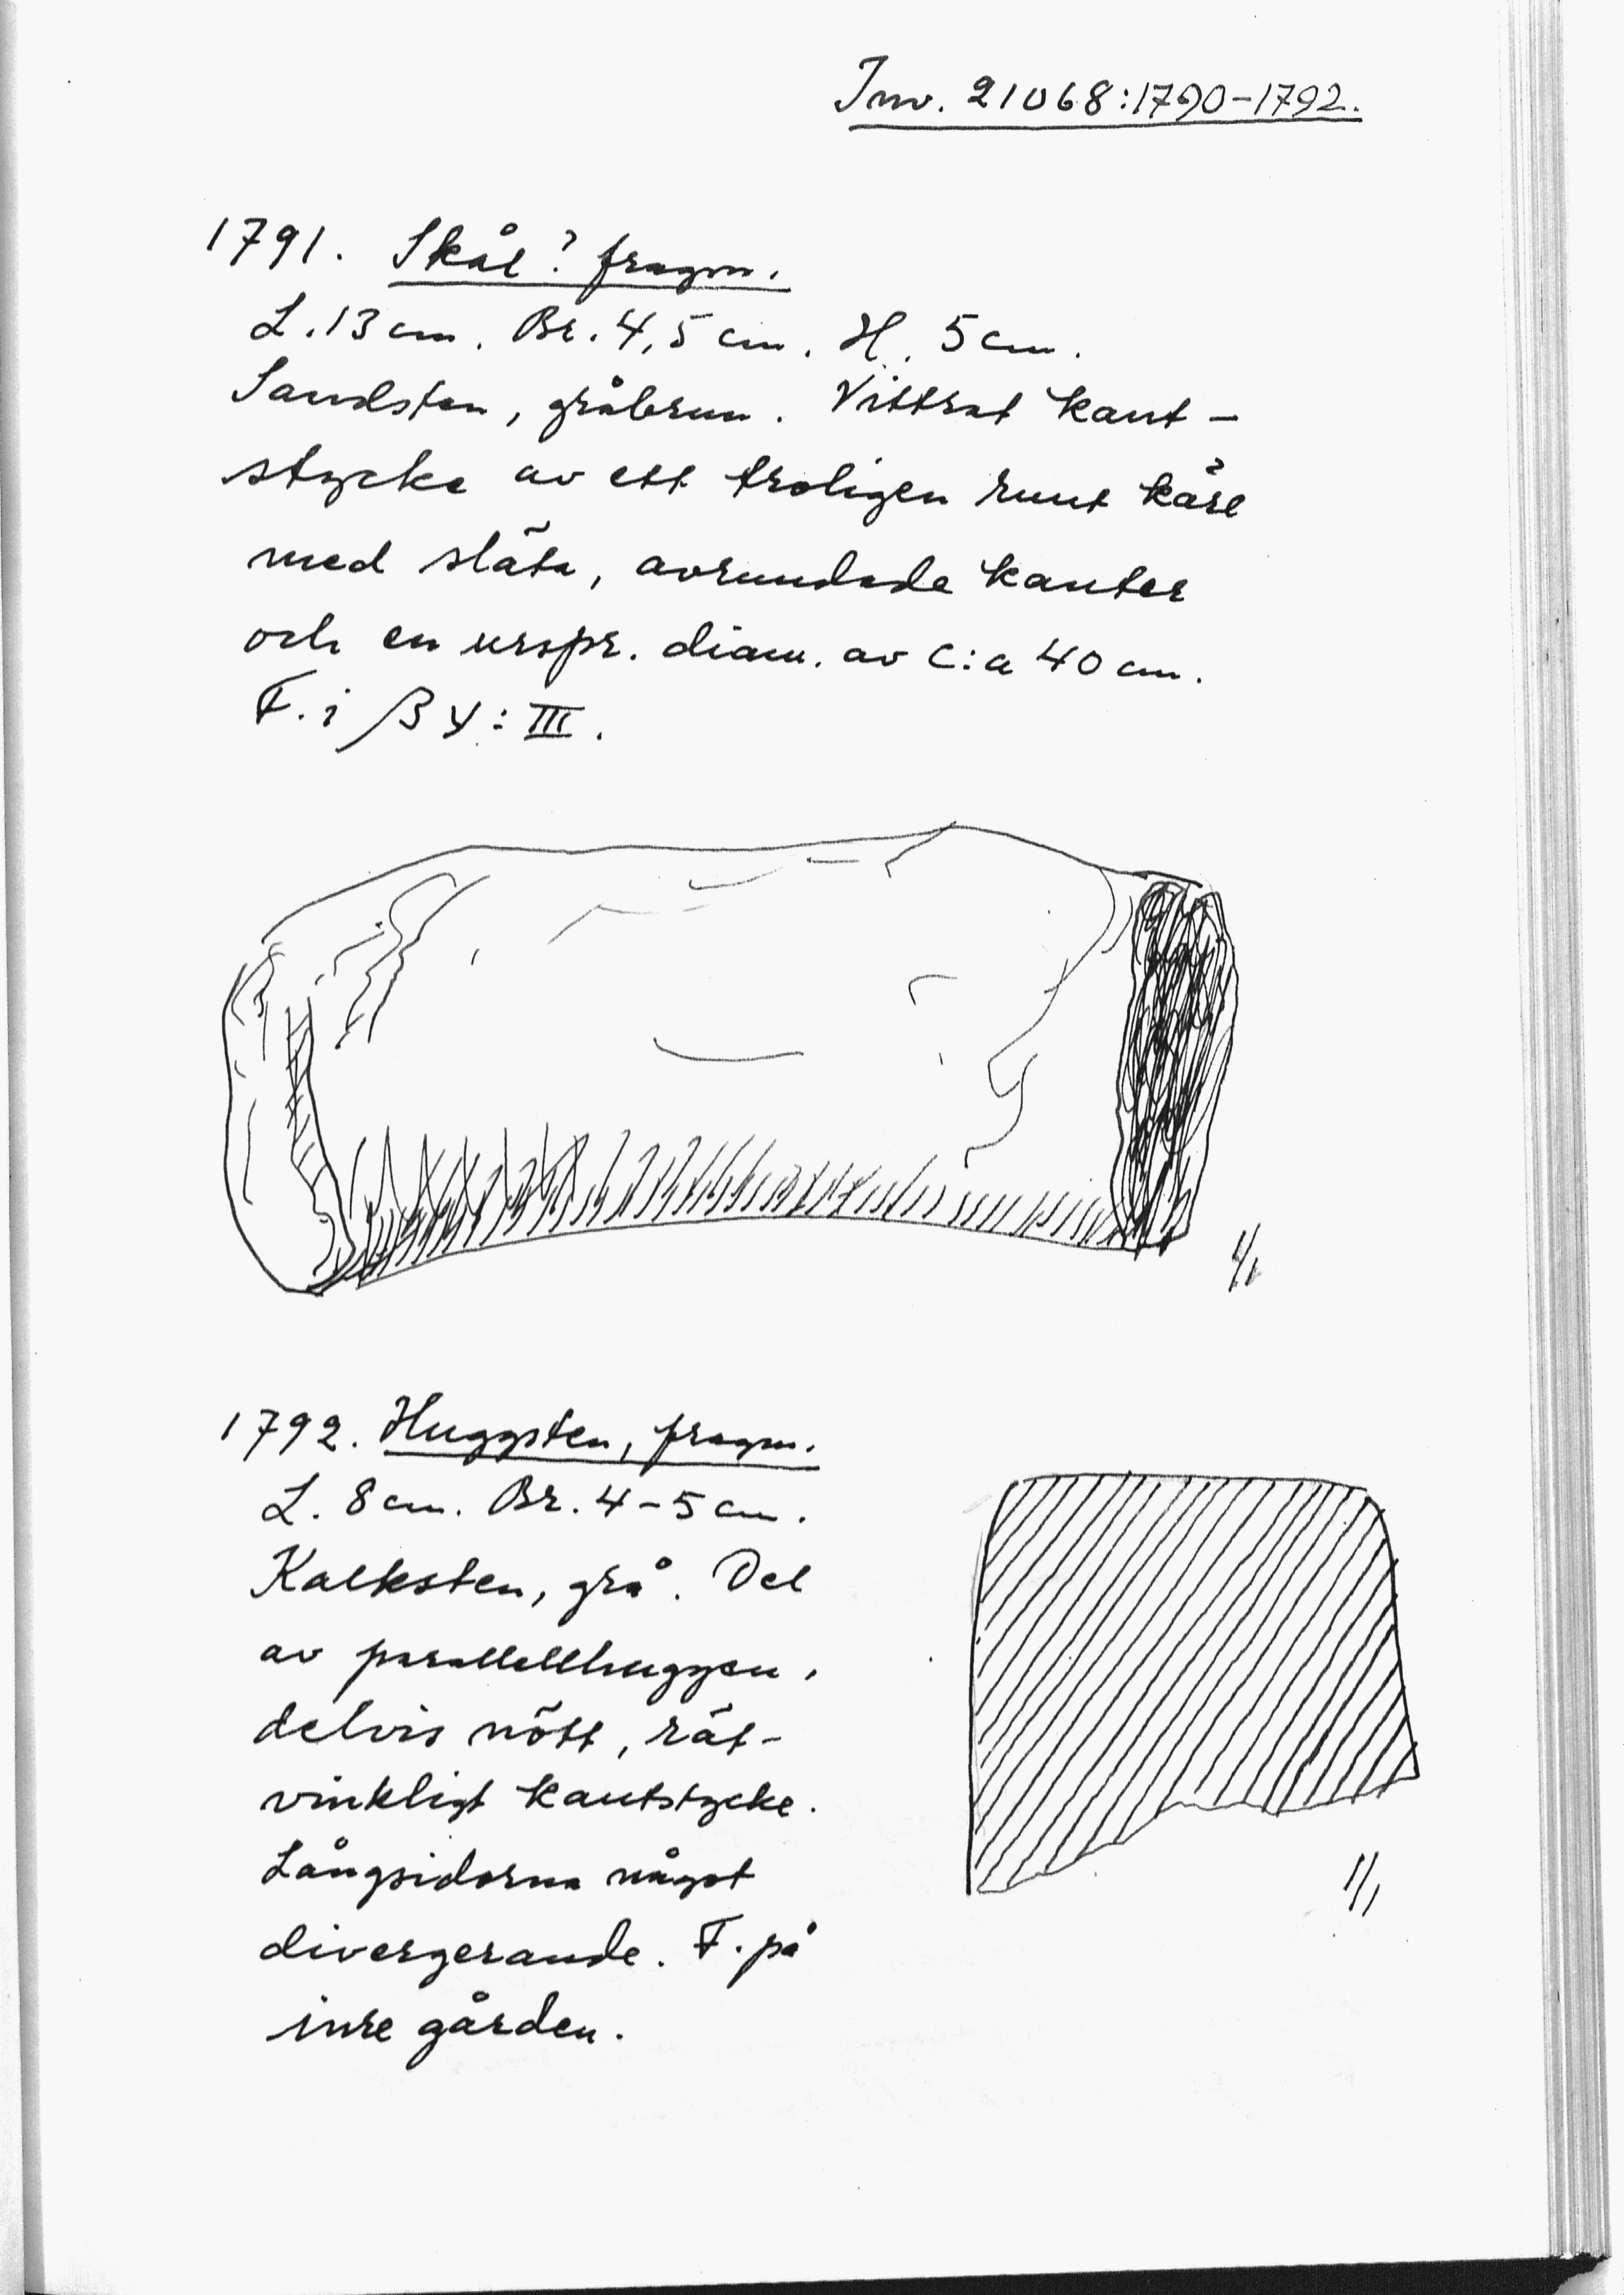 Inv. 21068:1790-1792.
1791. Skål? fragm.
L. 13 cm. Br. 4,5 cm. H. 5 cm.
Sandsten, gråbrun. Vittrat kant-
stycke av ett troligen runt kärl
med släta, avrundade kanter
och en urspr. diam. av c:a 40 cm.
F. i β 4 : III.
1/1
1792. Huggsten, fragm.
L. 8 cm. Br. 4-5 cm.
Kalksten, grå. Del
av parallellhuggen,
delvis nött, rät-
vinkligt kantstycke.
Långsidorna något
divergerande. F. på
inre gården.
1/1